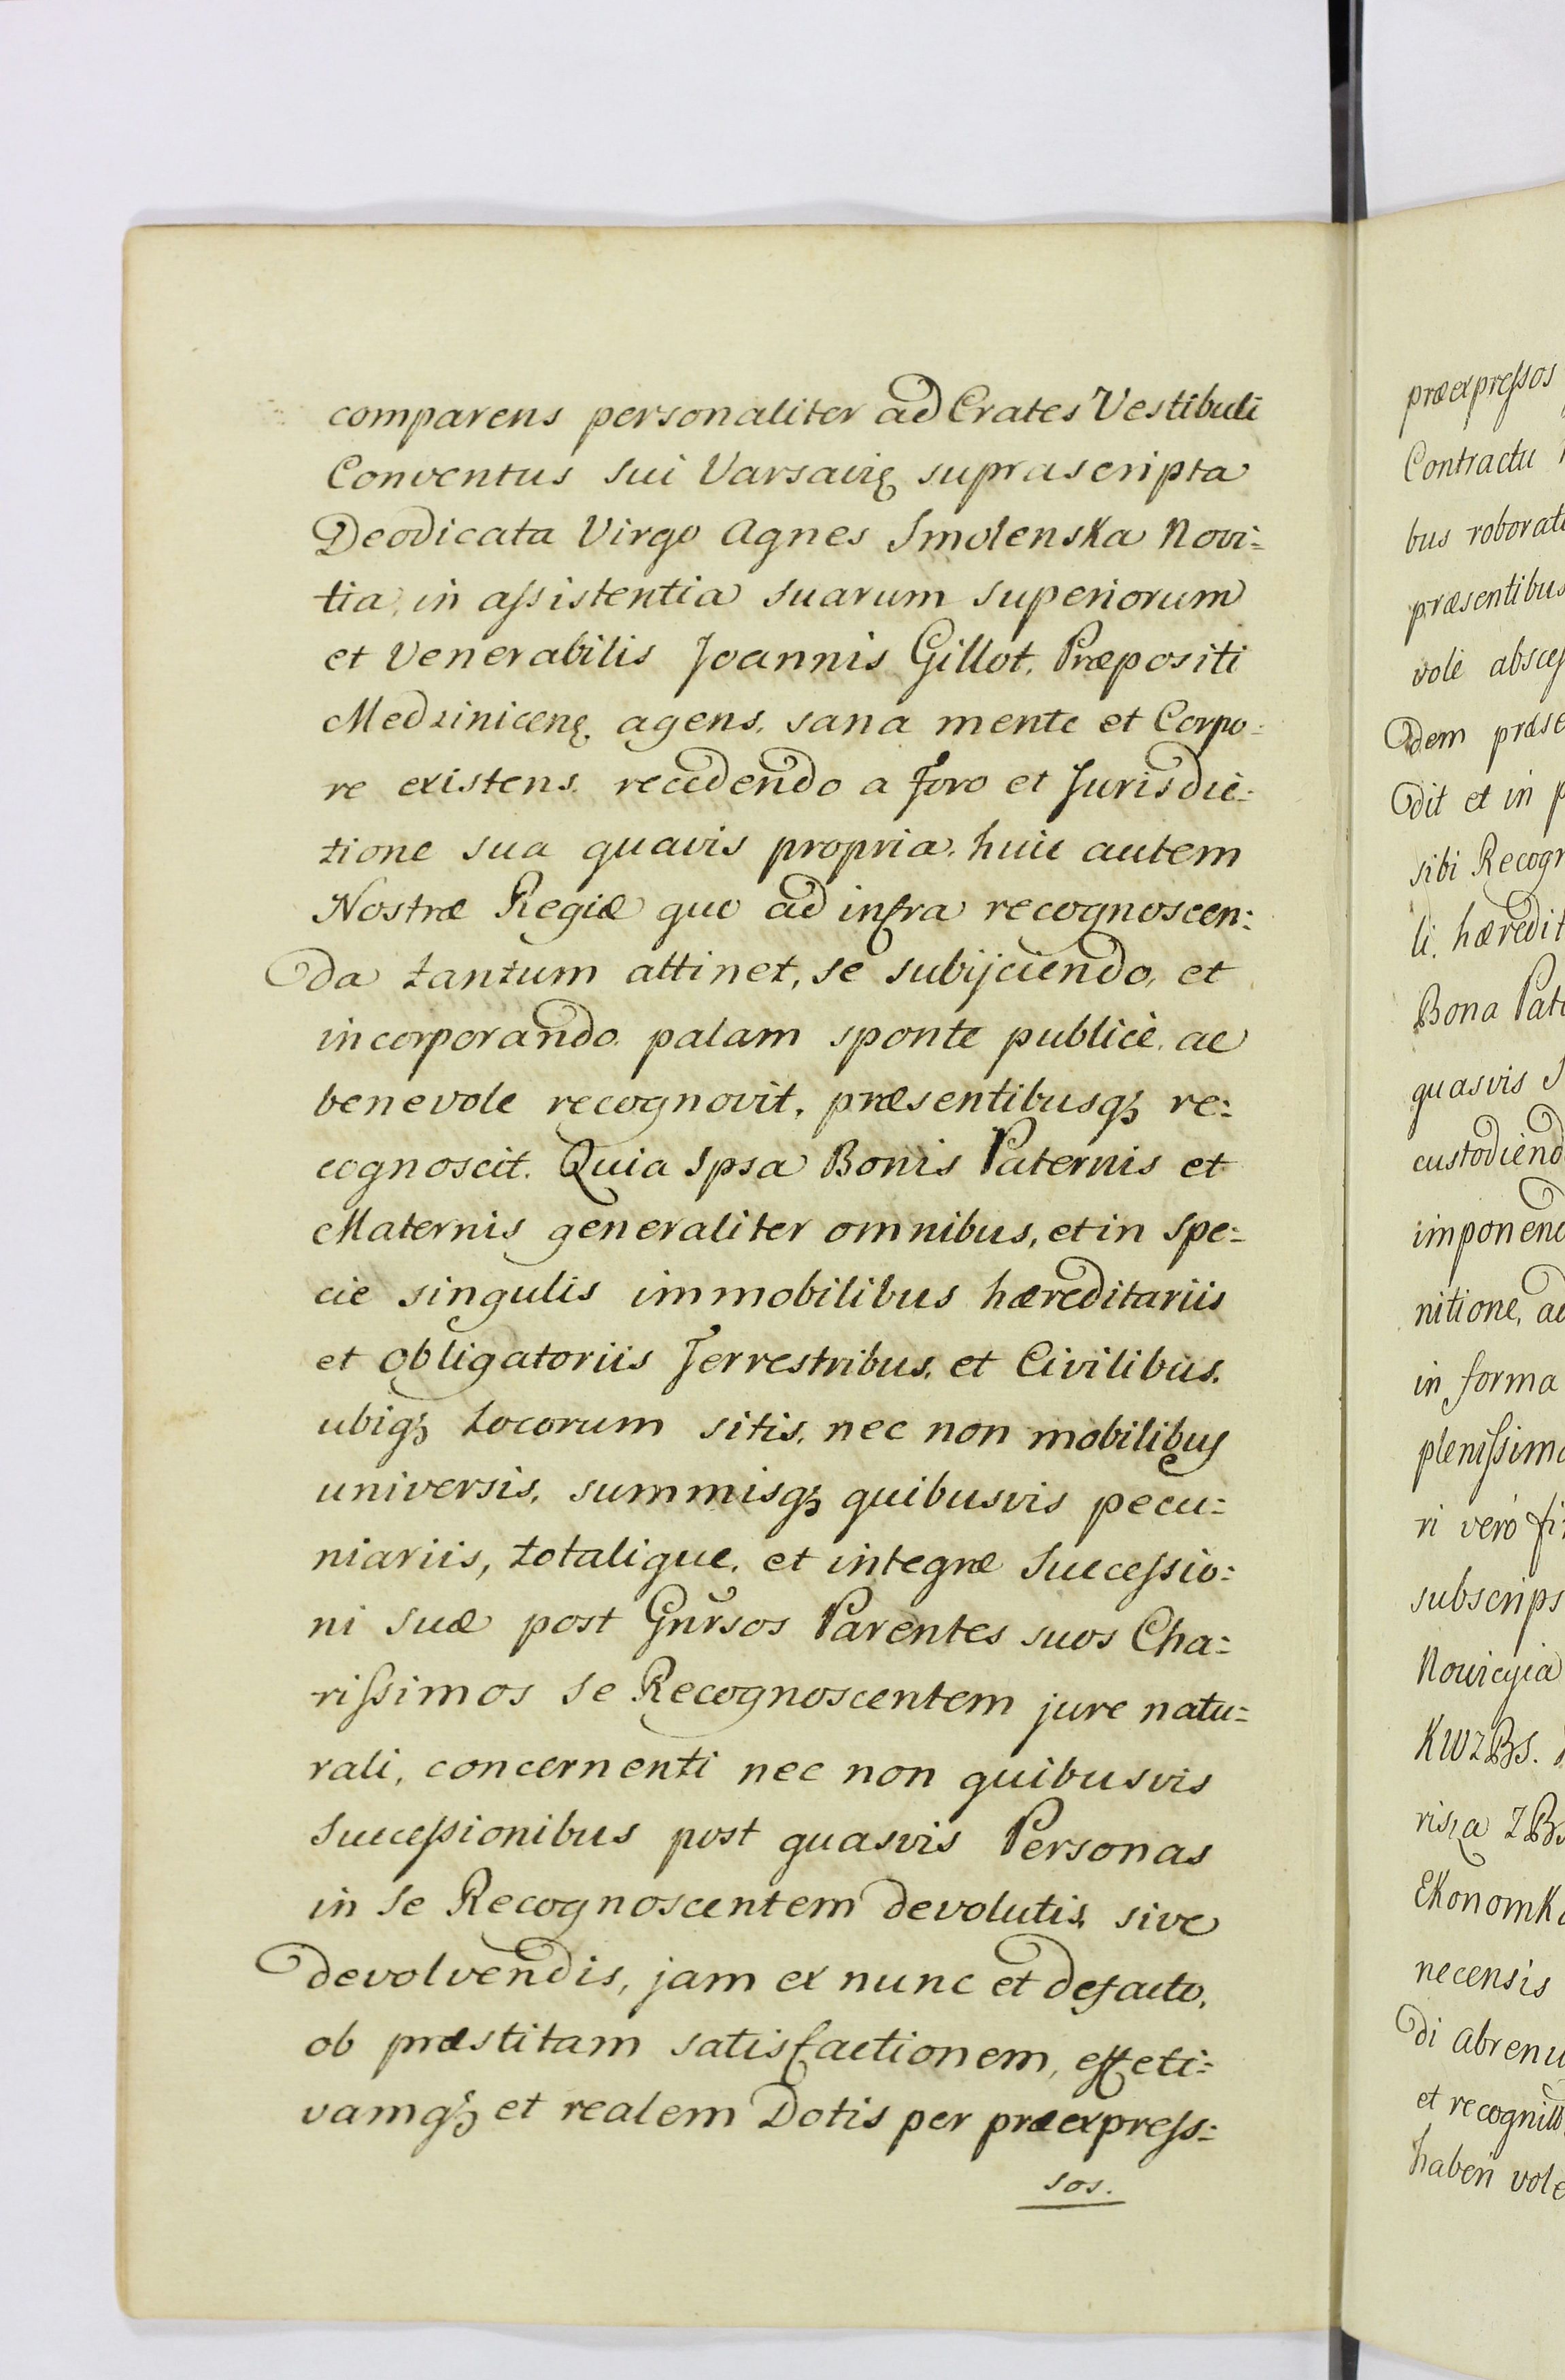 comparens personaliter ad Crates Vestibuli
Conventus sui Varsavię suprascripta
Deodicata Virgo Agnes Smolenska Novi=
tia, in aſsistentia suarum superiorum
et Venerabilis Joannis Gillot, Præpositi
Medzinicenę, agens, sana mente et Corpo=
re existens, recedendo a foro et Jurisdic=
tione sua quavis propria, huic autem
Nostræ Regiæ quo ad infra recognoscen=
da tantum attinet, se subijciendo, et
incorporando, palam sponte publicè, ac
benevole recognovit, præsentibusqꝫ re=
cognoscit. Quia Ipsa Bonis Paternis et
Maternis generaliter omnibus, et in spe=
cie singulis immobilibus hæreditariis
et obligatoriis Terrestribus, et Civilibus,
ubiqꝫ locorum sitis, nec non mobilibus
universis, summisqꝫ quibusvis pecu=
niariis, totalique, et integræ Succeſsio=
ni suæ post Gnrsos Parentes suos Cha=
riſsimos se Recognoscentem jure natu=
rali, concernenti nec non quibusvis
Succeſsionibus post quasvis Personas
in se Recognoscentem devolutis, sive
devolvendis, jam ex nunc et defacto,
ob præstitam satisfactionem, effecti=
vamqꝫ et realem Dotis per præexpreſs=
sos.
præexpreſsos
Contractu
bus roborat
præsentibus
volè absceſ
dem præse
dit et in p
sibi Recogn
li, hæredit
Bona Pat
quasvis S
custodiend
imponend
nitione, a
in forma
pleniſsim
ri verò fi
subscrips
Nowicyia
KWZBS.
risza ZBS
Ekonomk
necensis
di abrenu
et recognit
haberi vole